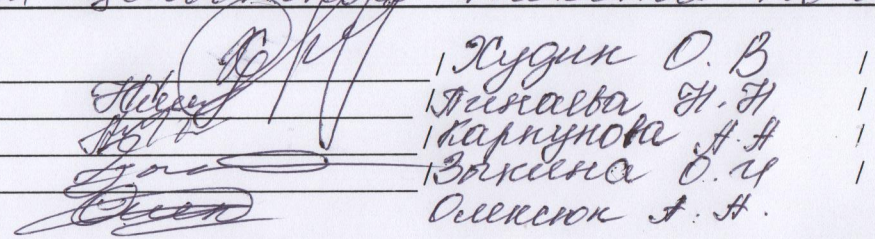 / Худин О. В /
/ Пинаева Н. Н /
/ Карпунова А. А /
/ Зыкина О. И /
Олексюк А. Н.